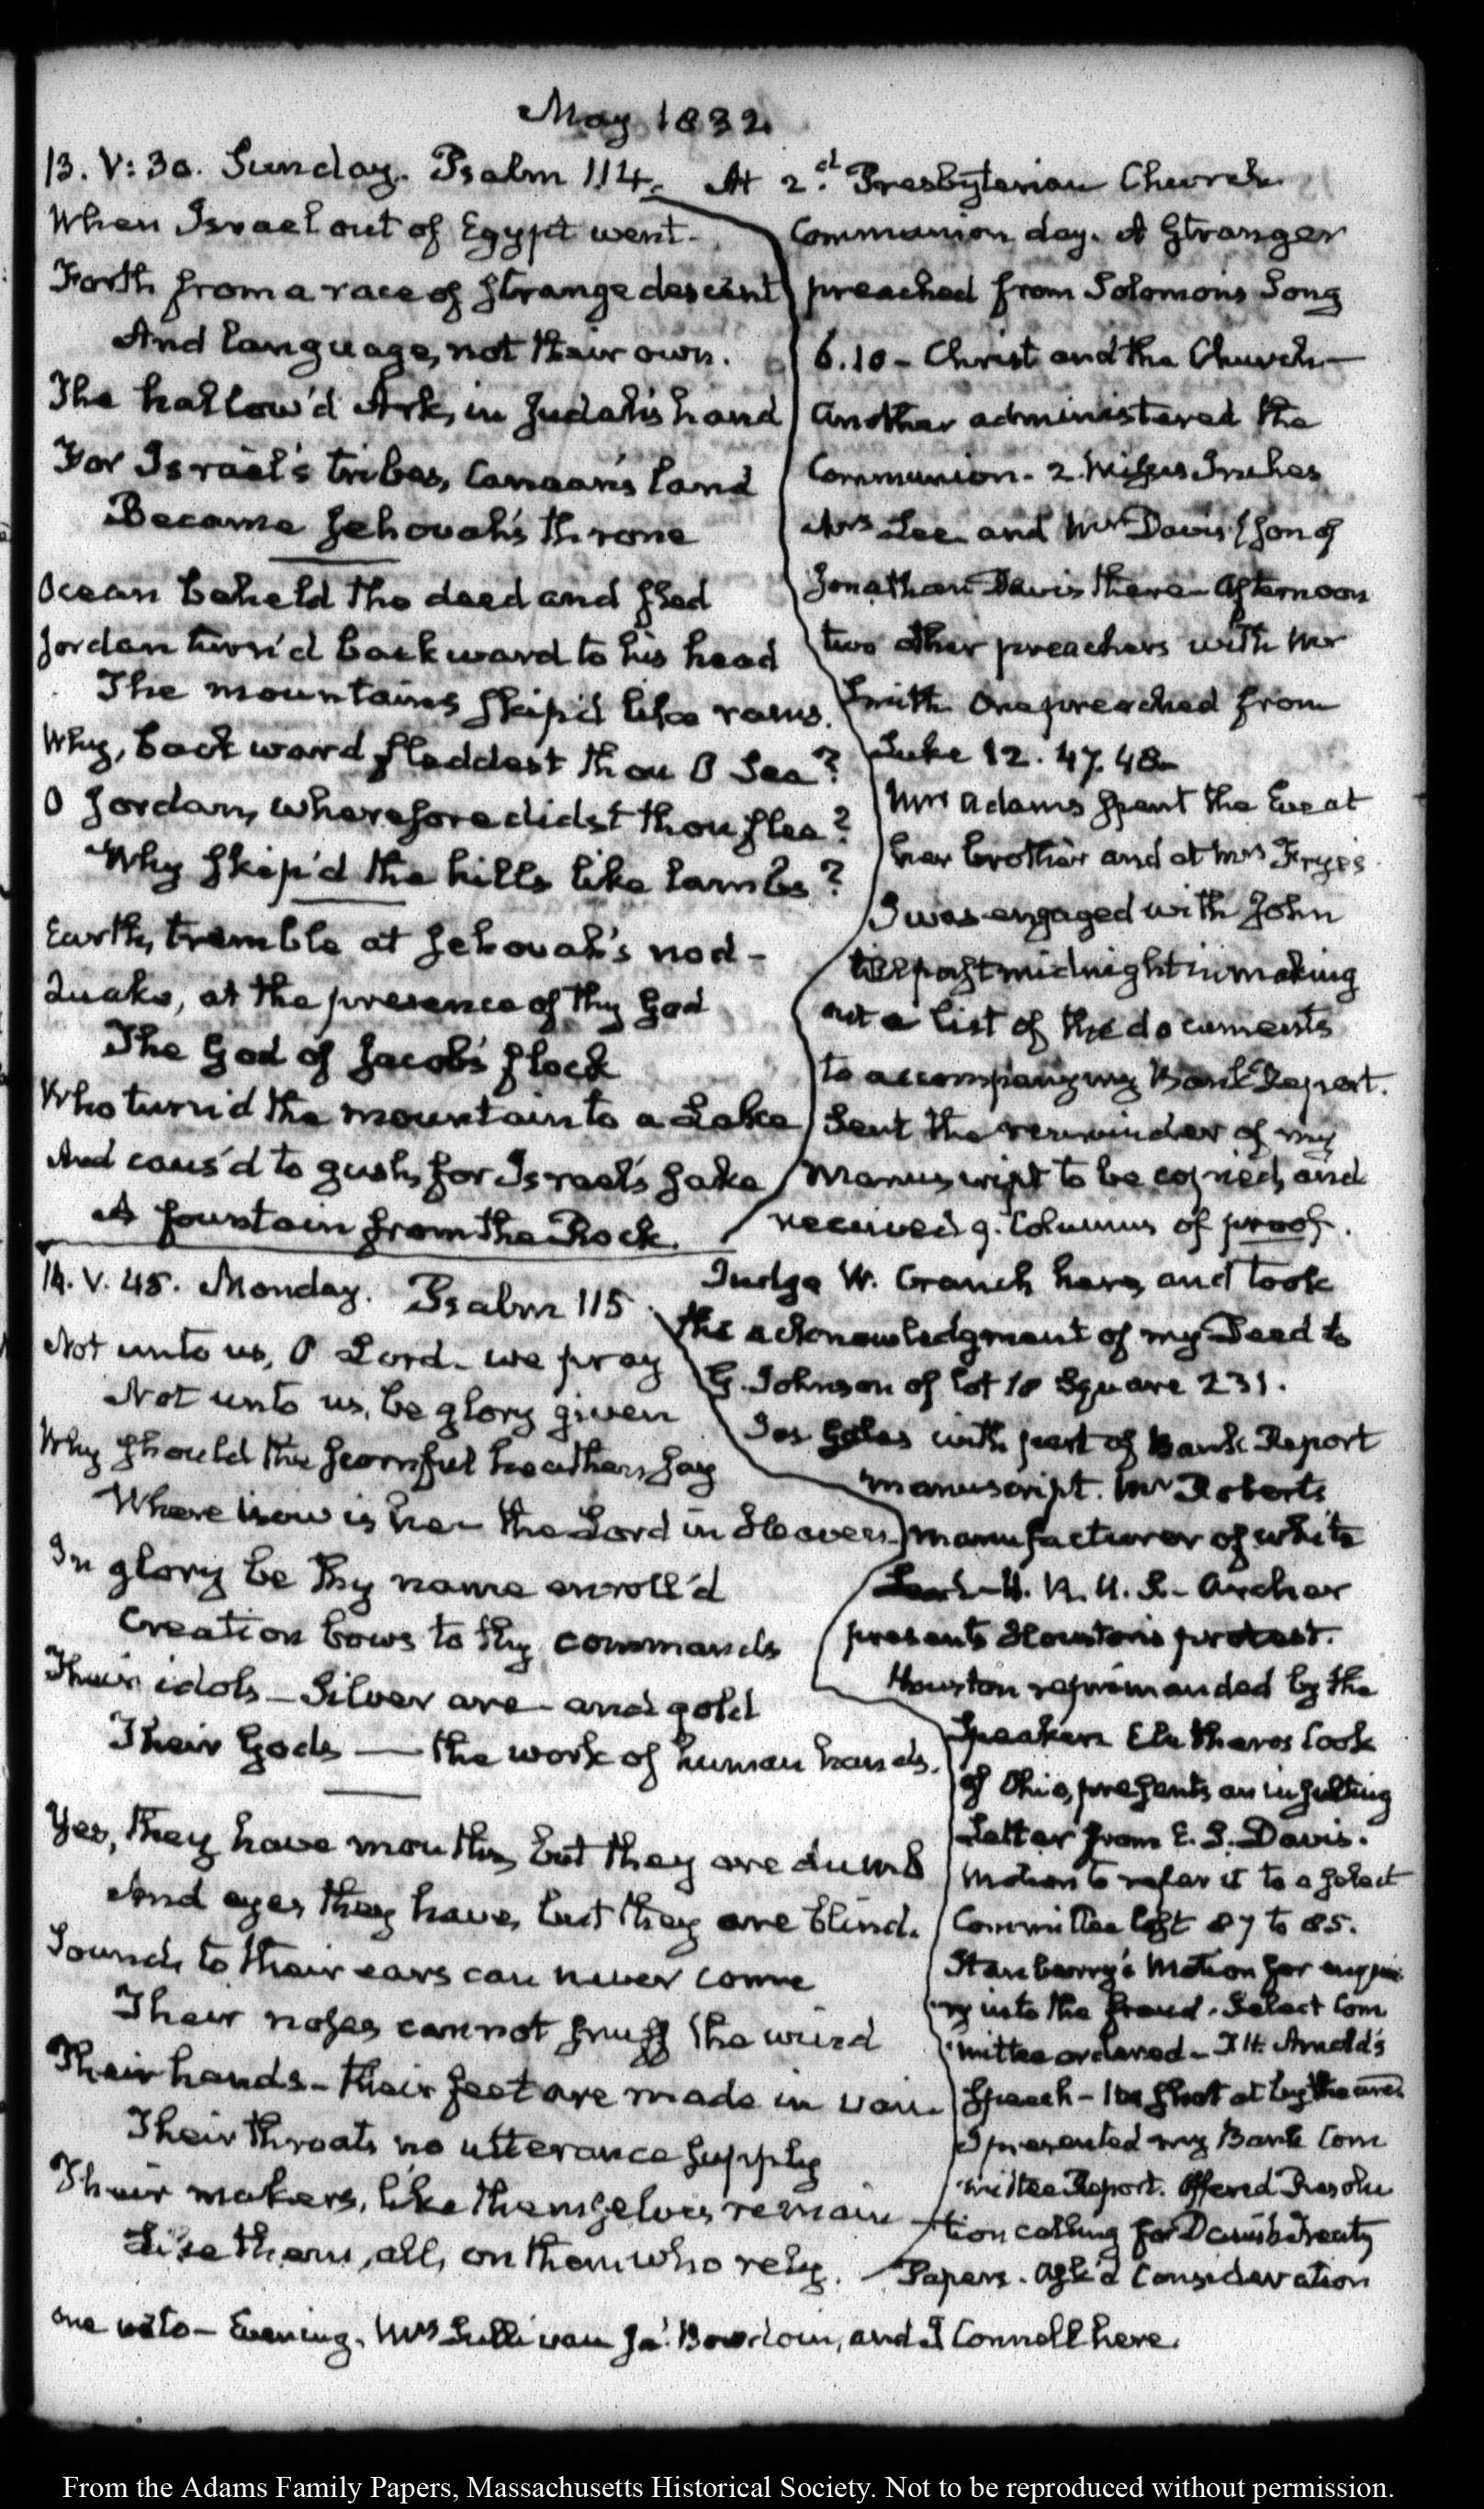 May 1832.
13. V: 30. Sunday. Psalm 114.
When Israel out of Egypt went.
Forth from a race of strange descent
And language, not their own.
The hallow'd Ark, in Judah's hand
For Israel's tribes, Canaan's land
Became Jehovah's throne
Ocean beheld the deed and fled
Jordan turn'd backward to his head
The mountains skip'd like rams.
Why, backward fleddest thou O Sea?
O Jordan, wherefore didst thou flee?
Why skip'd the hills like lambs?
Earth, tremble at Jehovah's nod -
Quake, at the presence of thy God
The God of Jacob's flock
Who turn'd the mountain to a Lake
And caus'd to gush, for Israel's sake
A fountain from the Rock.
At 2.d Presbyterian Church.
Communion day. A Stranger
preached from Solomon's Song
6.10 - Christ and the Church -
Another administered the
Communion. 2. Misses Inches
Mrs Lee and Mr Davis, son of
Jonathan Davis there - Afternoon
two other preachers with Mr
Smith One preached from
Luke 12. 47. 48.
Mrs Adams spent the Eve at
her brother and at Mrs Frye's.
I was engaged with John
till past midnight in making
out a list of the documents
to accompany my Bank Report.
Sent the remainder of my
Manuscript to be copied, and
received 9. Columns of proof.
14. V. 45. Monday. Psalm 115
Not unto us, O Lord - we pray
Not unto us, be glory given
Why should the scornful heathen say
Where now is he - the Lord in Heaven.
In glory be thy name enroll'd
Creation bows to thy commands
Their idols - Silver are - and gold
Their Gods — the work of human hands.
Yes, they have mouths, but they are dumb
And eyes they have, but they are blind.
Sounds to their ears can never come
Their noses cannot snuff the wind
Their hands - their feet are made in vain.
Their throats no utterance supply
Their makers, like themselves remain
Like them, all, on them who rely.
Judge W. Cranch here, and took
the acknowledgment of my Deed to
G. Johnson of lot 18 Square 231.
Jos Gales with part of Bank Report
manuscript. Mr Roberts
manufacturer of white
Lead - H. R. U. S. - Archer
presents Houston's protest.
Houston reprimanded by the
Speaker. Eleutheros Cook
of Ohio, presents an insulting
Letter from E. S. Davis.
Motion to refer it to a select
Committee lost 87 to 85.
Stanberry's Motion for enqui
ry into the fraud. Select Com
mittee ordered - T. H. Arnold's
Speech - shot at by
I presented my Bank Com
mittee Report. Offered Resolu
tion calling for Danish Treaty
Papers. Ask'd Consideration
Evening. Mrs Sullivan Js. Bowdoin, and J Connell here.